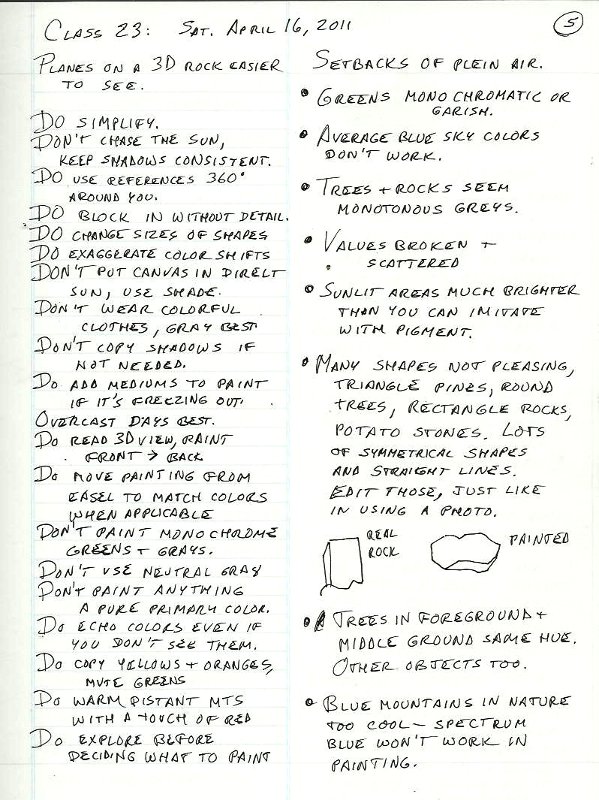 CLASS 23: SAT. APRIL 16, 2011
5
PLANES ON A 3D ROCK EASIER
TO SEE.
DO SIMPLIFY.
DON'T CHASE THE SUN,
KEEP SHADOWS CONSISTENT.
DO USE REFERENCES 360°
AROUND YOU.
DO BLOCK IN WITHOUT DETAIL.
DO CHANGE SIZES OF SHAPES
DO EXAGGERATE COLOR SHIFTS
DON'T PUT CANVAS IN DIRECT
SUN, USE SHADE.
DON'T WEAR COLORFUL
CLOTHES, GRAY BEST
DON'T COPY SHADOWS IF
NOT NEEDED.
DO ADD MEDIUMS TO PAINT
IF IT'S FREEZING OUT.
OVERCAST DAYS BEST.
DO READ 3D VIEW, PAINT
FRONT → BACK
DO MOVE PAINTING FROM
EASEL TO MATCH COLORS
WHEN APPLICABLE
DON'T PAINT MONOCHROME
GREENS + GRAYS.
DON'T USE NEUTRAL GRAY
DON'T PAINT ANYTHING
A PURE PRIMARY COLOR.
DO ECHO COLORS EVEN IF
YOU DON'T SEE THEM.
DO COPY YELLOWS + ORANGES,
MUTE GREENS
DO WARM DISTANT MTS
WITH A TOUCH OF RED
DO EXPLORE BEFORE
DECIDING WHAT TO PAINT
SETBACKS OF PLEIN AIR.
• GREENS MONOCHROMATIC OR
GARISH.
• AVERAGE BLUE SKY COLORS
DON'T WORK.
• TREES + ROCKS SEEM
MONOTONOUS GREYS.
• VALUES BROKEN +
SCATTERED
• SUNLIT AREAS MUCH BRIGHTER
THAN YOU CAN IMITATE
WITH PIGMENT.
• MANY SHAPES NOT PLEASING,
TRIANGLE PINES, ROUND
TREES, RECTANGLE ROCKS,
POTATO STONES. LOTS
OF SYMMETRICAL SHAPES
AND STRAIGHT LINES.
EDIT THOSE, JUST LIKE
IN USING A PHOTO.
REAL
ROCK
PAINTED
• TREES IN FOREGROUND +
MIDDLE GROUND SAME HUE.
OTHER OBJECTS TOO.
• BLUE MOUNTAINS IN NATURE
TOO COOL – SPECTRUM
BLUE WON'T WORK IN
PAINTING.